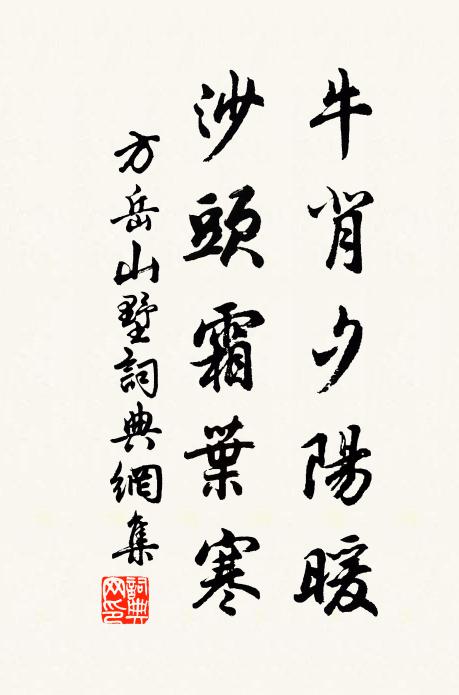 牛背夕陽暖
沙頭霜葉寒
方岳山墅詞典網集
詞典網印